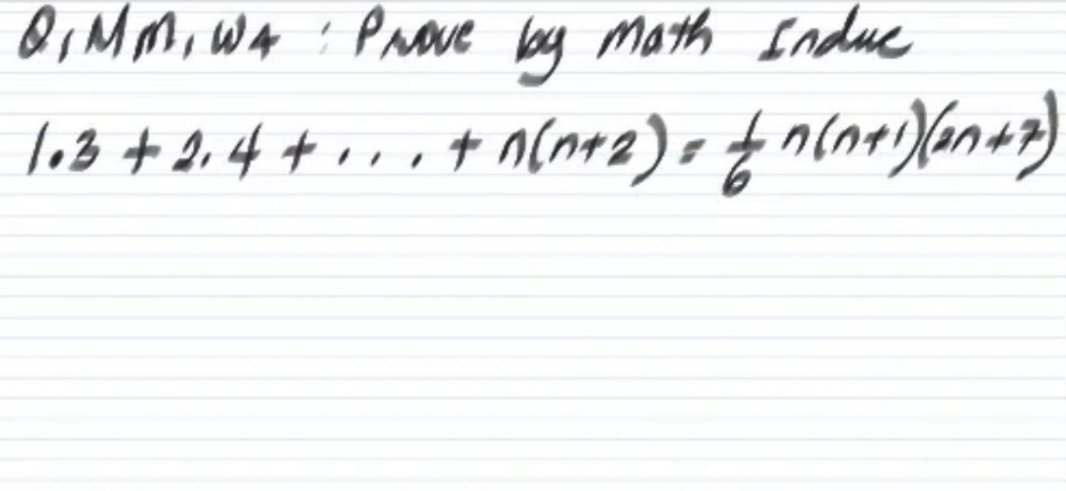 Q, M M, W4 : Prove by Math Induc
1.3 + 2.4 + . . . + n(n+2) = 1/6 n(n+1)(2n+7)